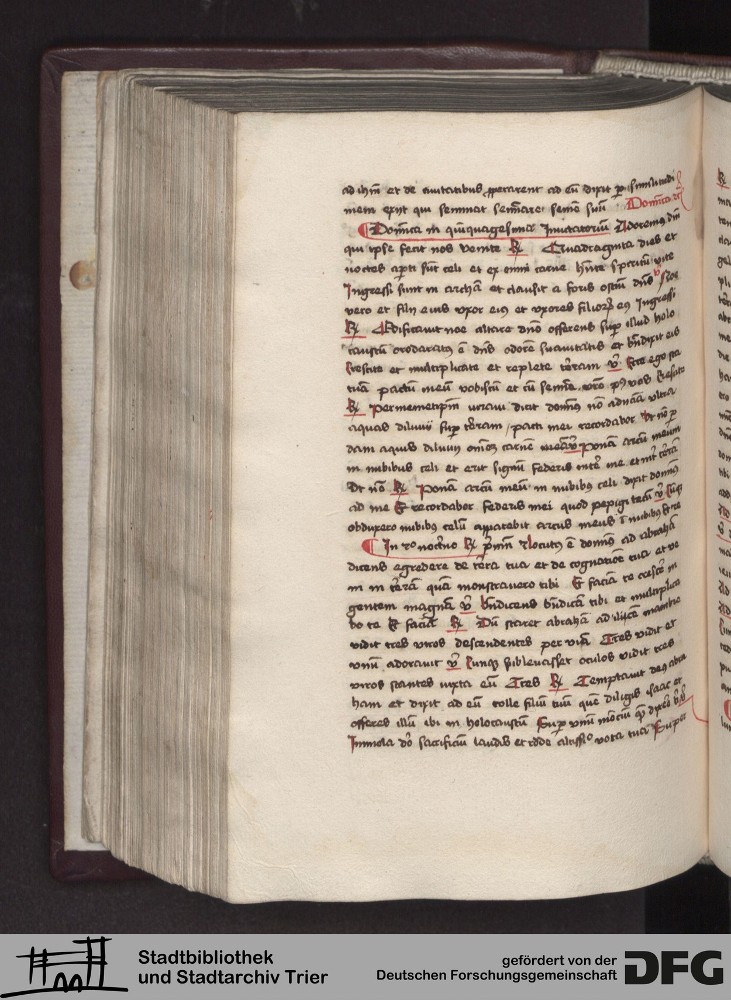 ad ihm et de civitatibus pperarent ad eu dixit p similitudi
nem exijt qui seminat semiare seme suu Domica
Domica in quiquagesima Invitatoriu Adoremus dm
qui ipse fecit nos Venite R Quadraginta dies et
noctes apti sut celi et ex omni carne hnte spiritu vite
Ingressi sunt in archa et clausit a foris ostiu dns v Noe
vero et filij eius vxor ei9 et vxores filior ei9 Ingressi
R Edificauit noe altare dno offerens sup illud holo
caustu odoratus e dns odore suauitatis et bndixit eis
Crescite et multiplicate et replete teram v Ecce ego sta
tua pactu meu vobiscu et cu semie vro p9 vos Crescite
R Per memetipm iuraui dicit domin9 no adicia vltra
aquas diluuij sup teram pacti mei recordabor Vt no p
dam aquis diluuij omem carne v Ponam arcu meum
in nubibus celi et erit signu federis inter me et int tera
Vt no R Ponam arcu meu in nubibus celi dixit domin9
ad noe Et recordabor federis mei quod pepigi tecu v Cuq
obduxero nubib9 celu apparebit arcus meus i nubib9 Et re
In io nocno R pmm Locutus e domin9 ad abraha
dicens egredere de tera tua et de cognatioe tua et ve
ni in tera qua monstrauero tibi Et facia te cresce in
gentem magna v Bndicens bndica tibi et multiplica
bo te Et facia R Du staret abraha ad ilice mambre
vidit tres viros descendentes per via Tres vidit et
vnu adorauit v Cunq subleuasset oculos vidit tres
viros stantes iuxta eu Tres R Temptauit de9 abra
ham et dixit ad eu tolle filiu tuu que diligis isaac et
offeres illu ibi in holocaustu Sup vnu motiu q dixero
Immola do sacrificiu laudis et redde altissio vota tua Super
Stadtbibliothek
und Stadtarchiv Trier
gefördert von der
Deutschen Forschungsgemeinschaft
DFG